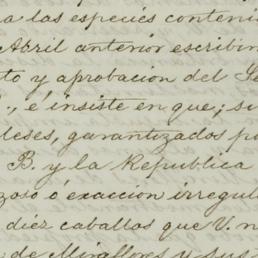 a las especies conteni
Abril anterior escribin
to y aprobacion del Se
., é insiste en que; si
leses, garantizados po
B. y la Republica
zoso ó exaccion irregul
diez caballos que V. n
de Miraflores y sus